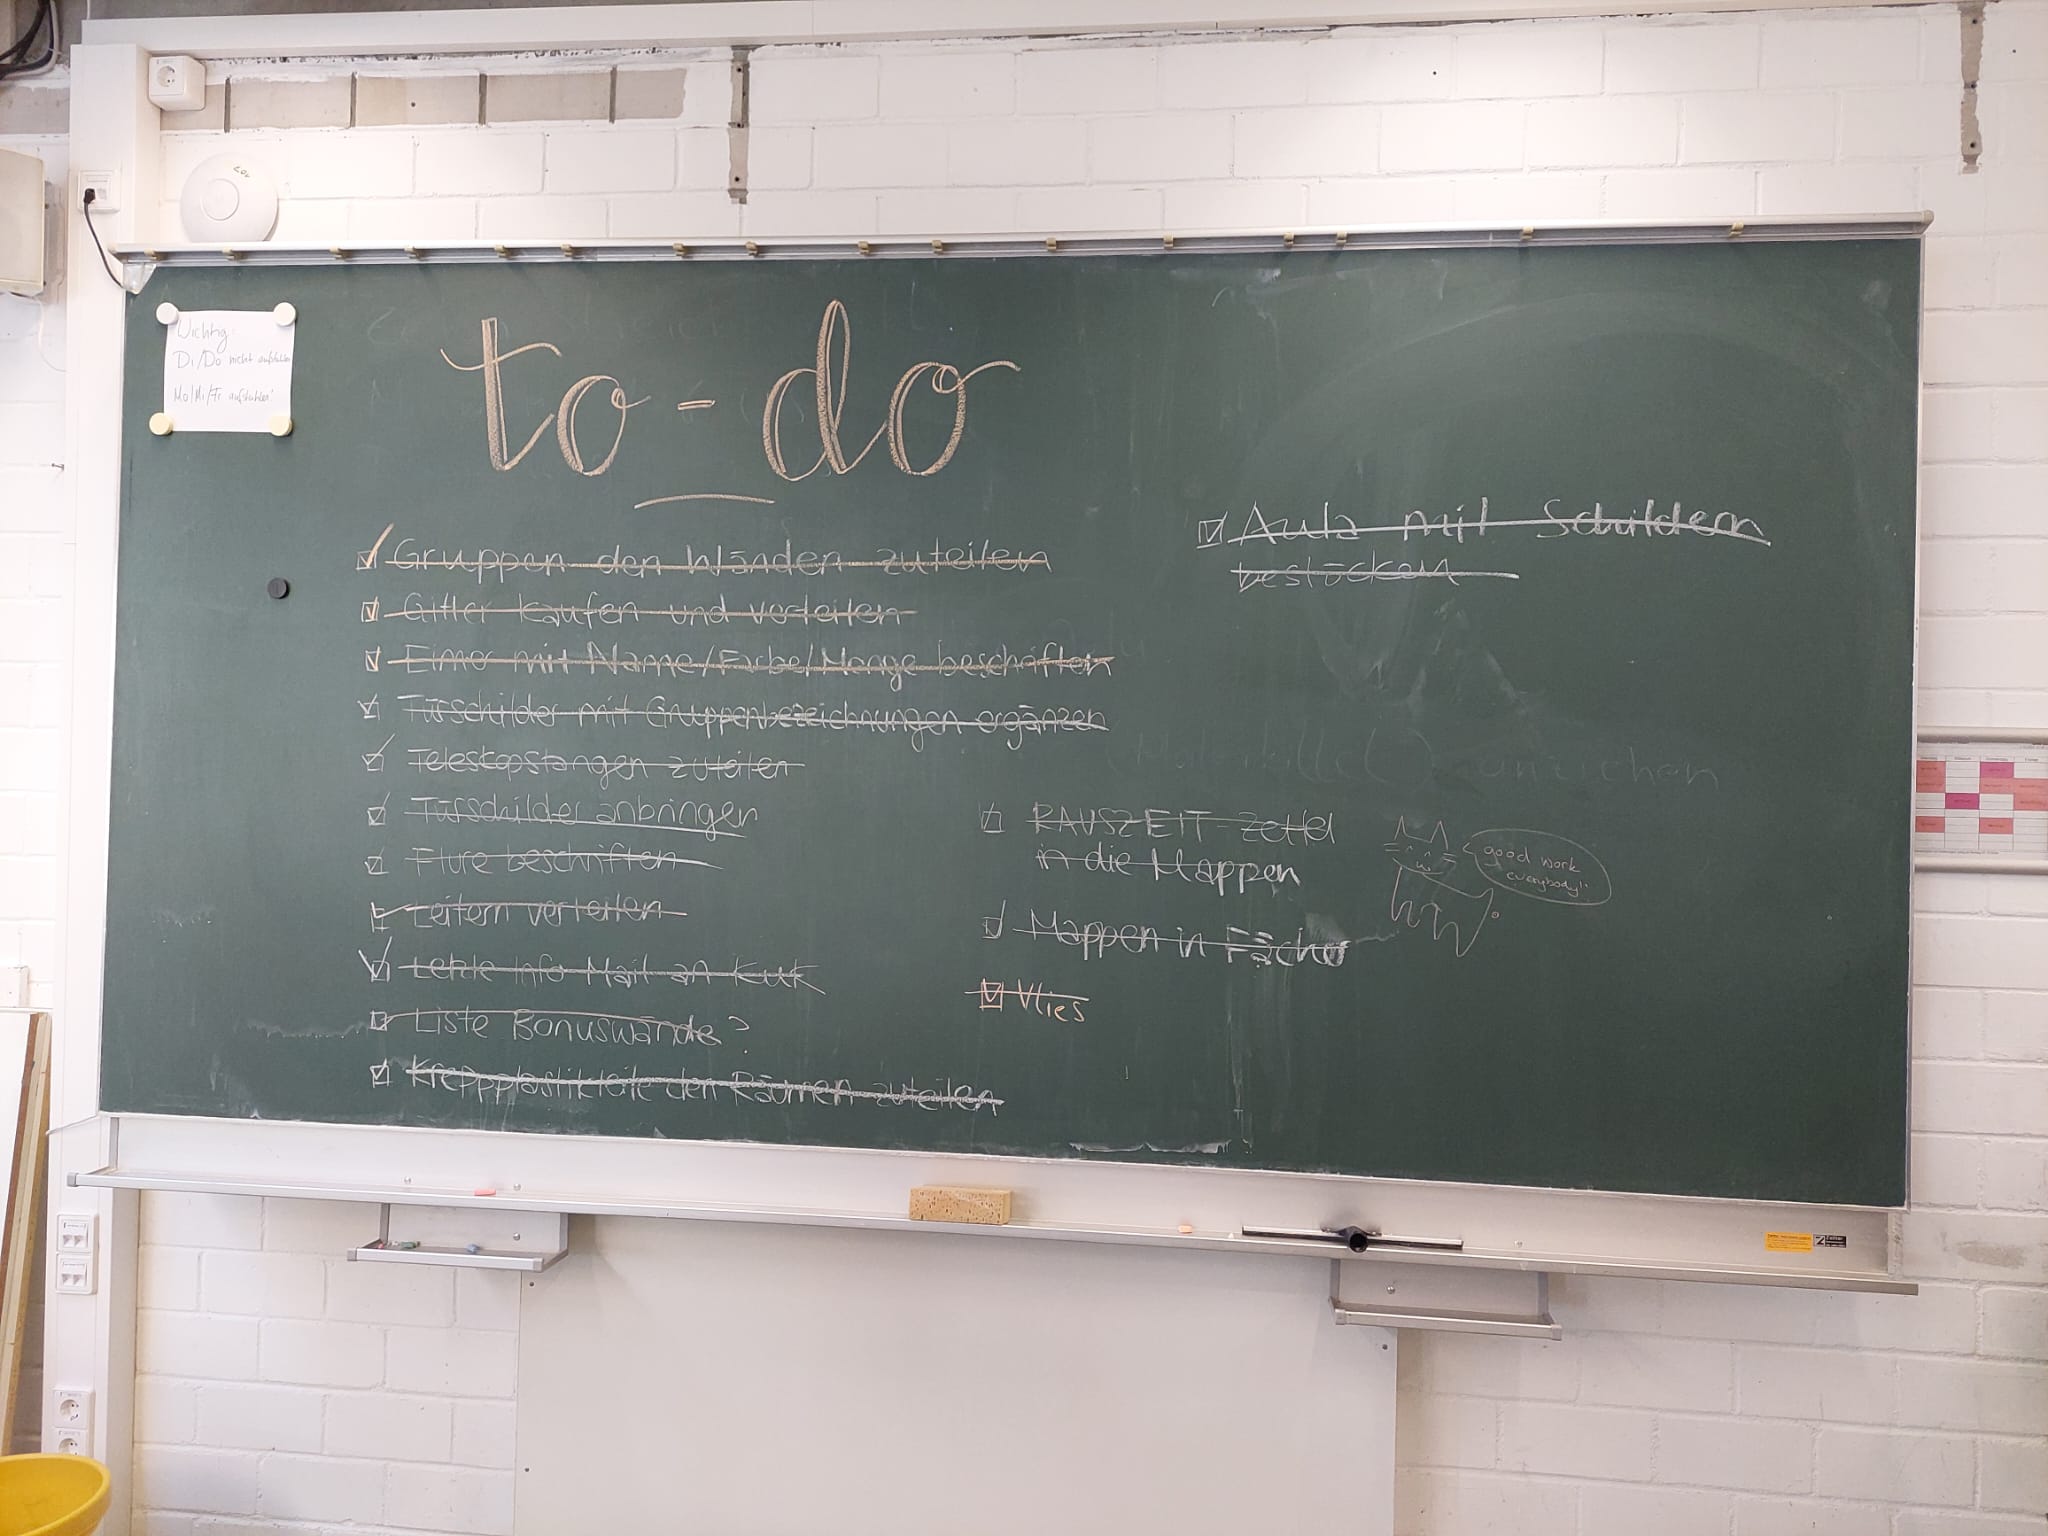 Wichtig:
Di/Do nicht aufstuhlen
Mo/Mi/Fr aufstuhlen!
to-do
Gruppen den Wänden zuteilen
Gitter kaufen und verteilen
Eimer mit Name/Farbe/Menge beschriften
Türschilder mit Gruppenbezeichnungen ergänzen
Teleskopstangen zuteilen
Türschilder anbringen
Flure beschriften
Leitern verteilen
Letzte Info Mail an KuK
Liste Bonuswände?
Kreppplastikteile den Räumen zuteilen
Aula mit Schildern
bestücken
RAUSZEIT-Zettel
in die Mappen
Mappen in Fächer
Vlies
good work
everybody!!